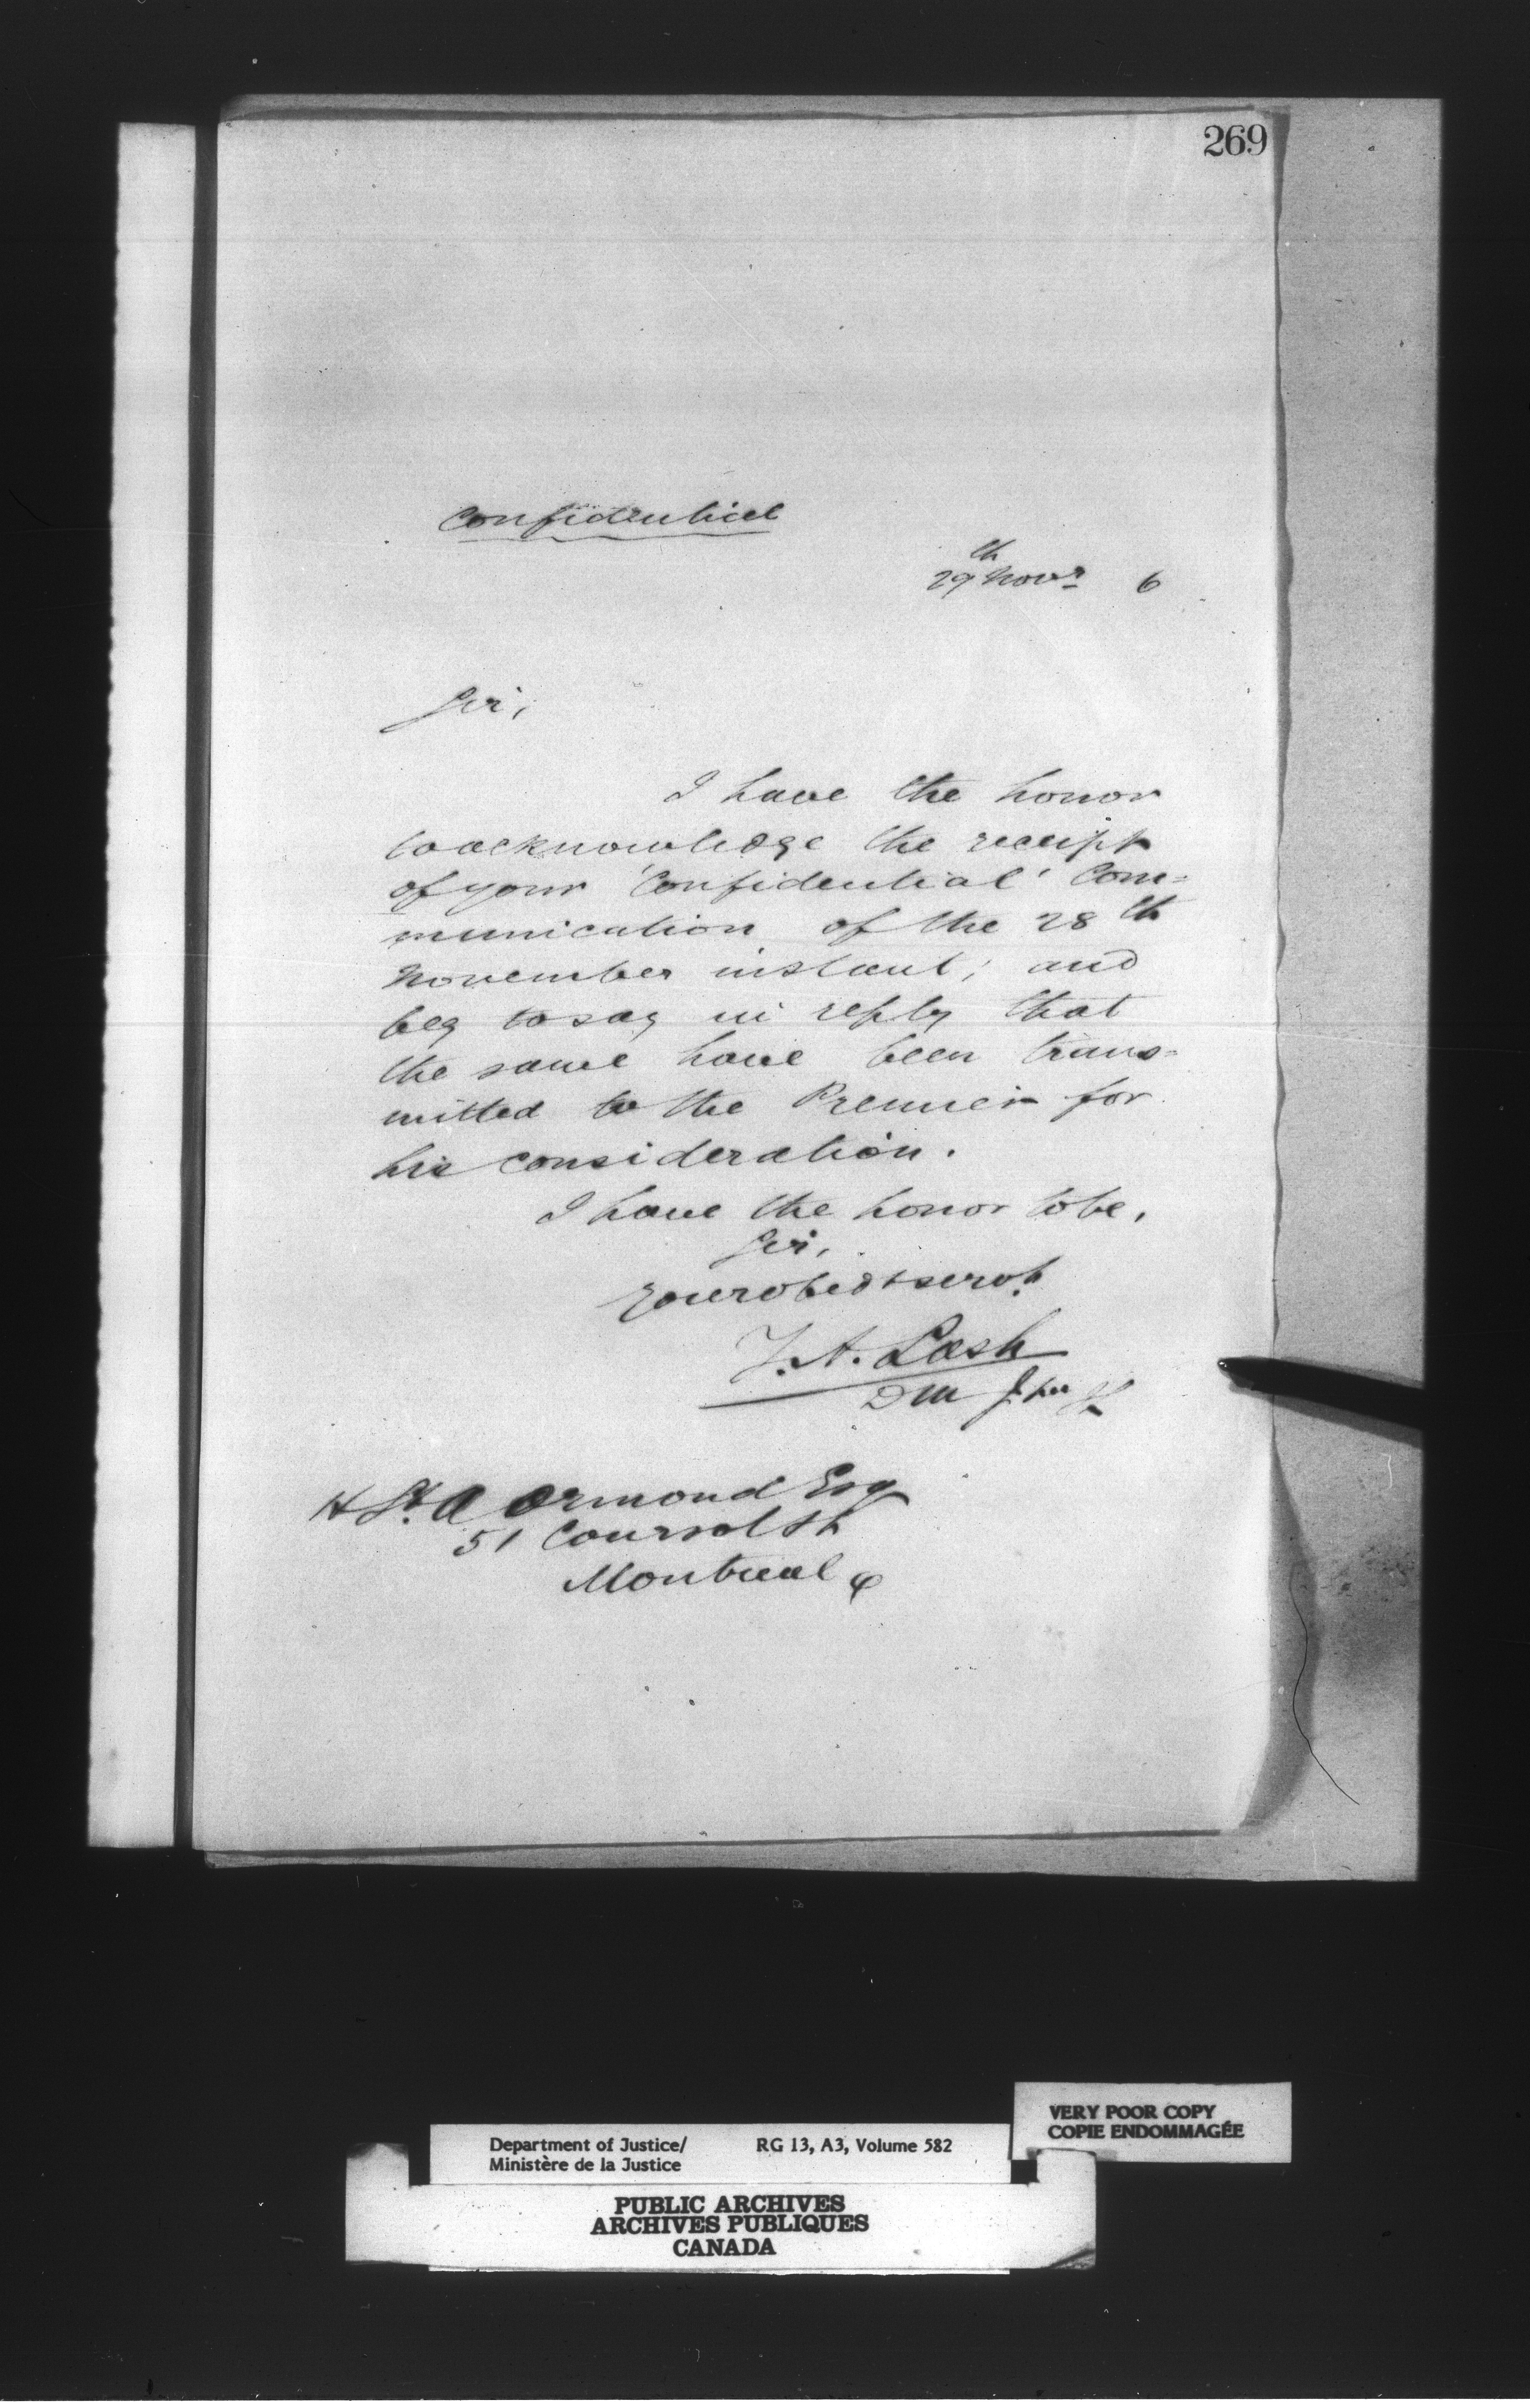 269
Confidential
29th Novr 6
Sir,
I have the honor
to acknowledge the receipt
of your 'Confidential' Com=
munication of the 28th
November instant; and
beg to say in reply that
the same have been trans=
mitted to the Premier for
his consideration.
I have the honor to be,
Sir,
Your obedt servt
Z. A. Lash
D M J
H St. A Ormond Esq
51 Coursol St
Montreal
VERY POOR COPY
COPIE ENDOMMAGÉE
Department of Justice/ RG 13, A3, Volume 582
Ministère de la Justice
PUBLIC ARCHIVES
ARCHIVES PUBLIQUES
CANADA